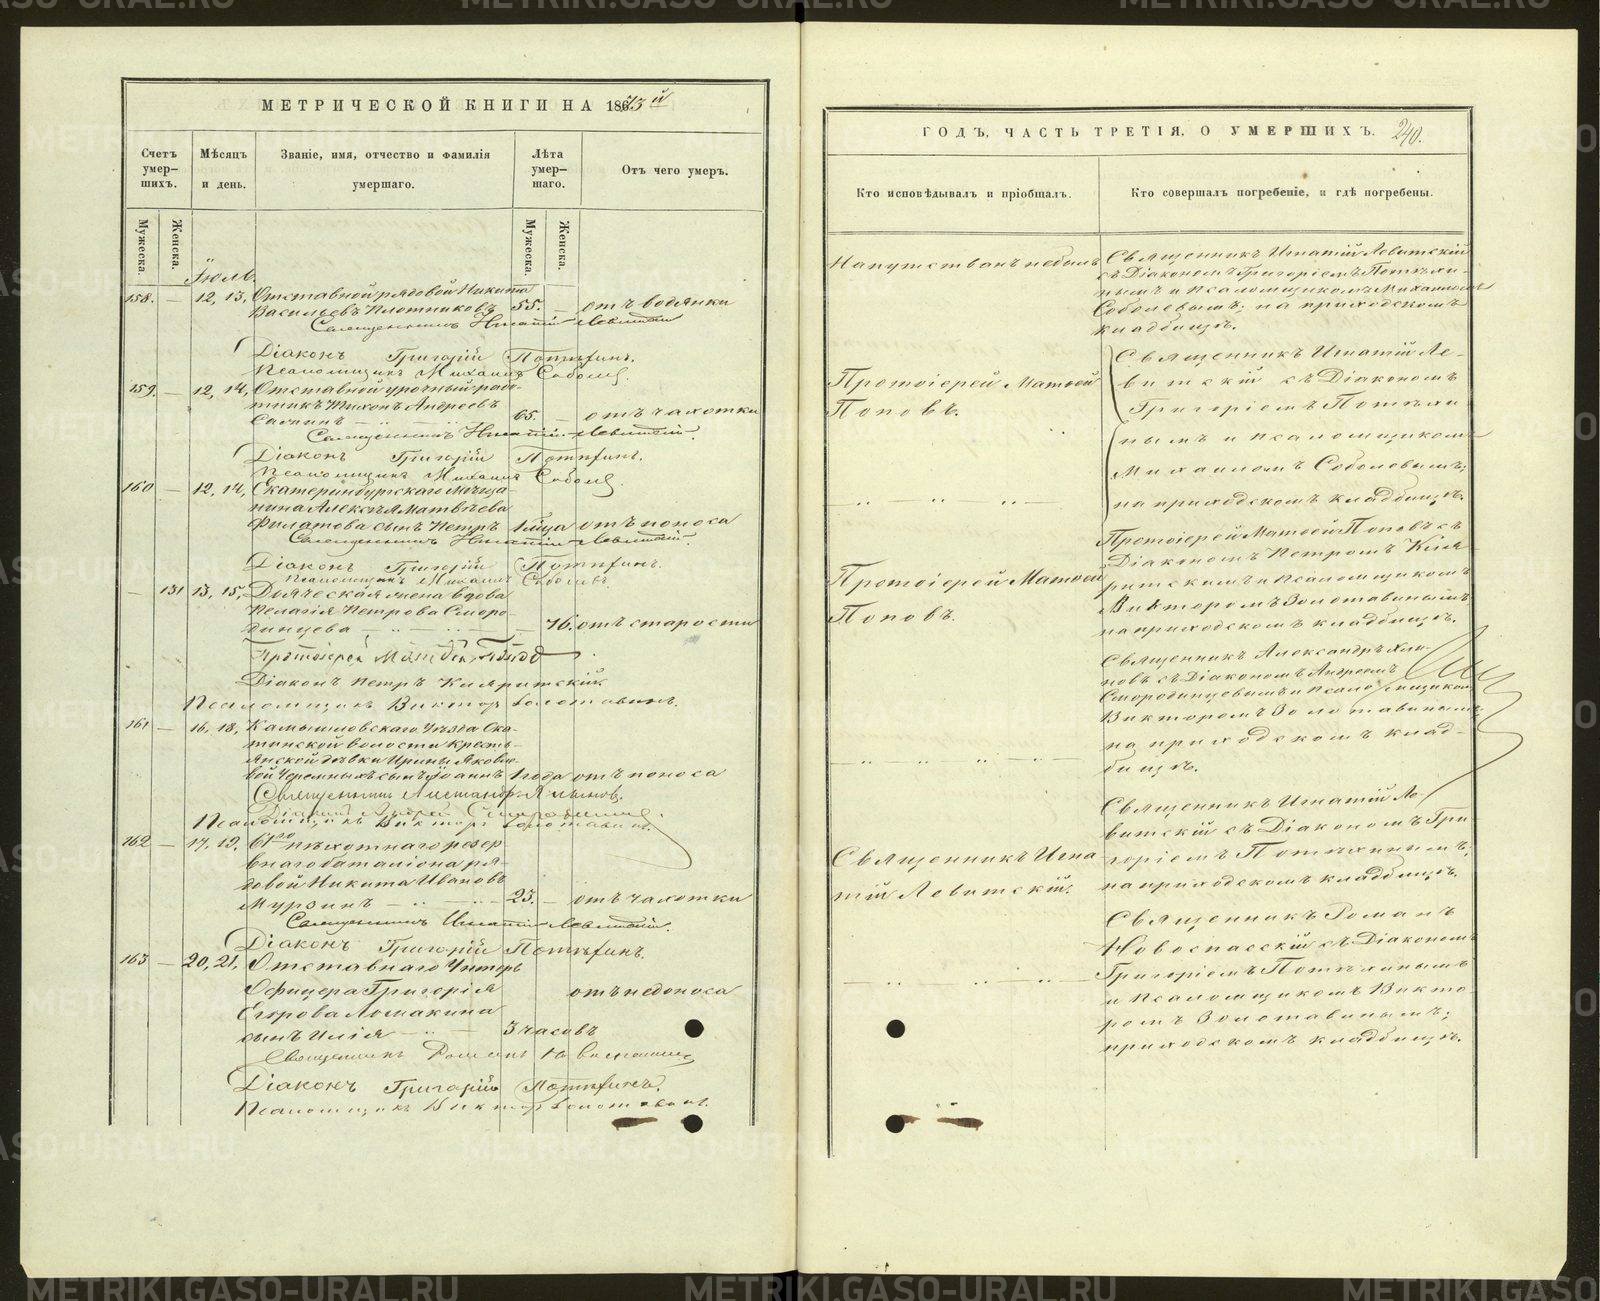 МЕТРИЧЕСКОЙ КНИГИ НА 1873й
Счетъ умер-шихъ.
Мѣсяцъ и день.
Званіе, имя, отчество и фамилія умершаго.
Лѣта умер-шаго.
Отъ чего умеръ.
Мужеска.
Женска.
Мужеска.
Женска.
Іюль
158. — 12, 13, Отставной рядовой Никита
Васильевъ Плотниковъ 55. — отъ водянки
Священникъ Игнатій Левитскій
Діаконъ Григорій Потѣхинъ.
Псаломщикъ Михаилъ Соболев.
159. — 12, 14, Отставной урочный рабо-
тникъ Тихонъ Андреевъ
65. — отъ чахотки
Священникъ Игнатій Левитскій.
Діаконъ Григорій Потѣхинъ.
Псаломщикъ Михаилъ Соболев.
160 — 12, 14, Екатеринбургскаго мѣща-
нина Алексѣя Матвѣева
Филатова сынъ Петръ 1 мѣца отъ поноса
Священникъ Игнатій Левитскій.
Діаконъ Григорій Потѣхинъ.
Псаломщикъ Михаилъ Соболевъ.
— 131 13, 15,
вдова
Пелагія Петрова Сморо-
динцева — — 76. отъ старости
Протоіерей Матвей Поповъ
Діаконъ Петръ Кляритскій
Псаломщикъ Викторъ Золотавинъ.
161 — 16, 18, Камышловскаго Уѣзда Ска-
тинской волости кресть-
янской дѣвки Ирины Яковле-
вой Черемныхъ сынъ Іоаннъ 1 года отъ поноса
Священникъ Александръ
Діаконъ Андрей Смородинцев.
Псаломщикъ Викторъ Золотавинъ.
162 — 17, 19, 61го пѣхотнаго резер
внаго баталіона ря-
довой Никита Ивановъ
Мурзинъ — — 23. — отъ чахотки
Священникъ Игнатій Левитскій.
Діаконъ Григорій Потѣхинъ.
163 — 20, 21, Отставнаго Унтеръ
Офицера Григорія отъ недоноса
Егорова Ломакина
сынъ Илія — 3 часовъ
Священникъ Романъ Новоспасскій
Діаконъ Григорій Потѣхинъ.
Псаломщикъ Викторъ Золотавинъ.
ГОДЪ, ЧАСТЬ ТРЕТІЯ, О УМЕРШИХЪ. 240.
Кто исповѣдывалъ и пріобщалъ.
Кто совершалъ погребеніе, и гдѣ погребены.
Напутствованъ не былъ
Священникъ Игнатій Левитскій
съ Діакономъ Григоріемъ Потѣхи-
нымъ и псаломщикомъ Михаиломъ
Соболевымъ; на приходскомъ
кладбищѣ.
Протоіерей Матвей
Поповъ.
Священникъ Игнатій Ле-
витскій съ Діакономъ
Григоріемъ Потѣхи
нымъ и псаломщикомъ
Михаиломъ Соболевымъ;
на приходскомъ кладбищѣ.
Протоіерей Матвей
Поповъ.
Протоіерей Матвей Поповъ съ
Діакономъ Петромъ Кля-
ритскимъ и псаломщикомъ
Викторомъ Золотавинымъ
на приходскомъ кладбищѣ.
Священникъ Александръ
новъ съ Діакономъ Андреемъ
Смородинцевымъ и псаломщикомъ
Викторомъ Золотавинымъ;
на приходскомъ клад-
бищѣ.
Священникъ Игна
тій Левитскій.
Священникъ Игнатій Ле
витскій съ Діакономъ Гри-
горіемъ Потѣхинымъ;
на приходскомъ кладбищѣ.
Священникъ Романъ
Новоспасскій съ Діакономъ
Григоріемъ Потѣхинымъ
и псаломщикомъ Викто-
ромъ Золотавинымъ;
приходскомъ кладбищѣ.
METRIKI.GASO-URAL.RU